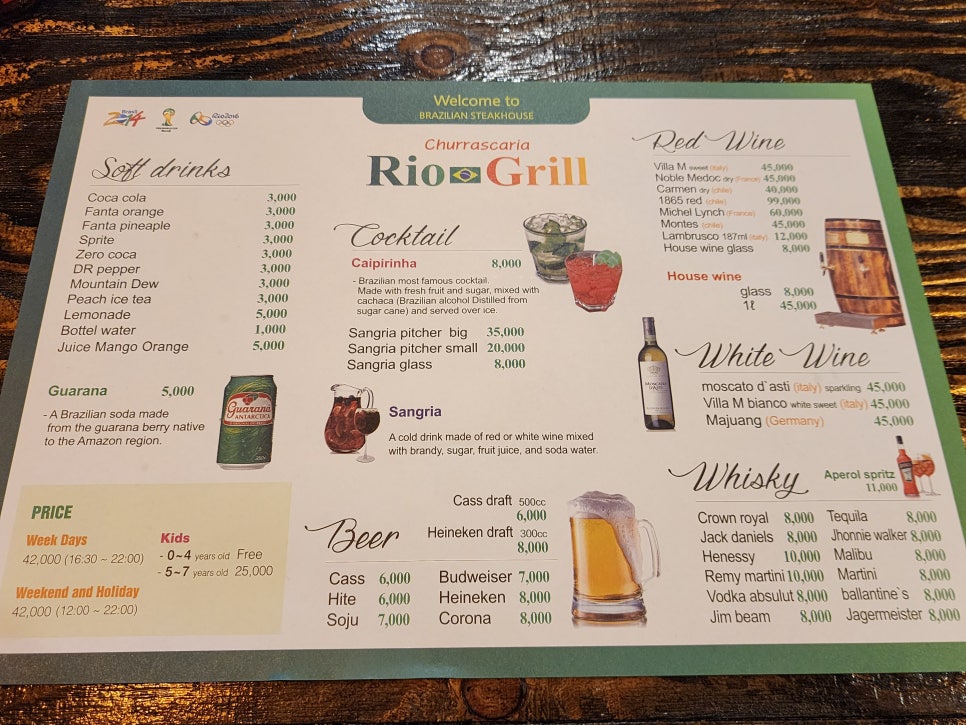 Welcome to
BRAZILIAN STEAKHOUSE
Brasil
2014
Rio2016
Churrascaria
Rio Grill
Soft drinks
Coca cola 3,000
Fanta orange 3,000
Fanta pineaple 3,000
Sprite 3,000
Zero coca 3,000
DR pepper 3,000
Mountain Dew 3,000
Peach ice tea 3,000
Lemonade 5,000
Bottel water 1,000
Juice Mango Orange 5,000
Guarana 5,000
- A Brazilian soda made
from the guarana berry native
to the Amazon region.
Guaraná
ANTARCTICA
PRICE
Week Days
42,000 (16:30 ~ 22:00)
Weekend and Holiday
42,000 (12:00 ~ 22:00)
Kids
- 0~4 years old Free
- 5~7 years old 25,000
Cocktail
Caipirinha 8,000
- Brazilian most famous cocktail.
Made with fresh fruit and sugar, mixed with
cachaca (Brazilian alcohol Distilled from
sugar cane) and served over ice.
Sangria pitcher big 35,000
Sangria pitcher small 20,000
Sangria glass 8,000
Sangria
A cold drink made of red or white wine mixed
with brandy, sugar, fruit juice, and soda water.
Beer
Cass draft 500cc
6,000
Heineken draft 300cc
8,000
Cass 6,000 Budweiser 7,000
Hite 6,000 Heineken 8,000
Soju 7,000 Corona 8,000
Red Wine
Villa M sweet (italy) 45,000
Noble Medoc dry (France) 45,000
Carmen dry (chile) 40,000
1865 red (chile) 99,000
Michel Lynch (France) 60,000
Montes (chile) 45,000
Lambrusco 187ml (italy) 12,000
House wine glass 8,000
House wine
glass 8,000
1ℓ 45,000
White Wine
MOSCATO
D'ASTI
moscato d`asti (italy) sparkling 45,000
Villa M bianco white sweet (italy) 45,000
Majuang (Germany) 45,000
Whisky
Aperol spritz
11,000
Crown royal 8,000 Tequila 8,000
Jack daniels 8,000 Jhonnie walker 8,000
Henessy 10,000 Malibu 8,000
Remy martini 10,000 Martini 8,000
Vodka absulut 8,000 ballantine`s 8,000
Jim beam 8,000 Jagermeister 8,000